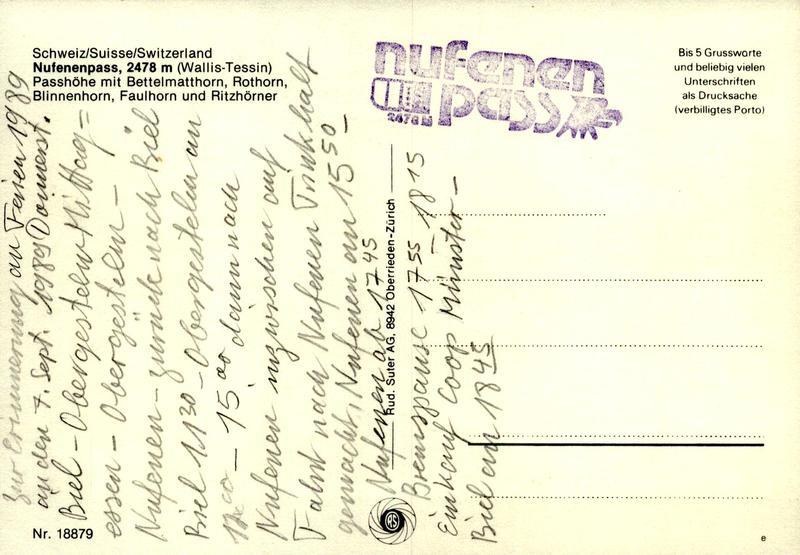 Schweiz/Suisse/Switzerland
Nufenenpass, 2478 m (Wallis-Tessin)
Passhöhe mit Bettelmatthorn, Rothorn,
Blinnenhorn, Faulhorn und Ritzhörner
nufenen
pass
2478 M
Bis 5 Grussworte
und beliebig vielen
Unterschriften
als Drucksache
(verbilligtes Porto)
Zur Erinnerung an Ferien 1989
an den 7. Sept. 1989 Donnerst.
Biel - Obergesteln - Mittag=
essen - Obergesteln -
Nufenen - zurück nach Biel
Biel 11 30 - Obergesteln an
- 15.00 dann nach
Nufenen inzwischen auf
Fahrt nach Nufenen Trinkhalt
gemacht, Nufenen an 15 50 -
Nufenen ab 17 45
Bremspause 17 55 - 18 15
Einkauf Coop Münster -
Biel an 18 45
Rud. Suter AG, 8942 Oberrieden-Zürich
RS
Nr. 18879
e